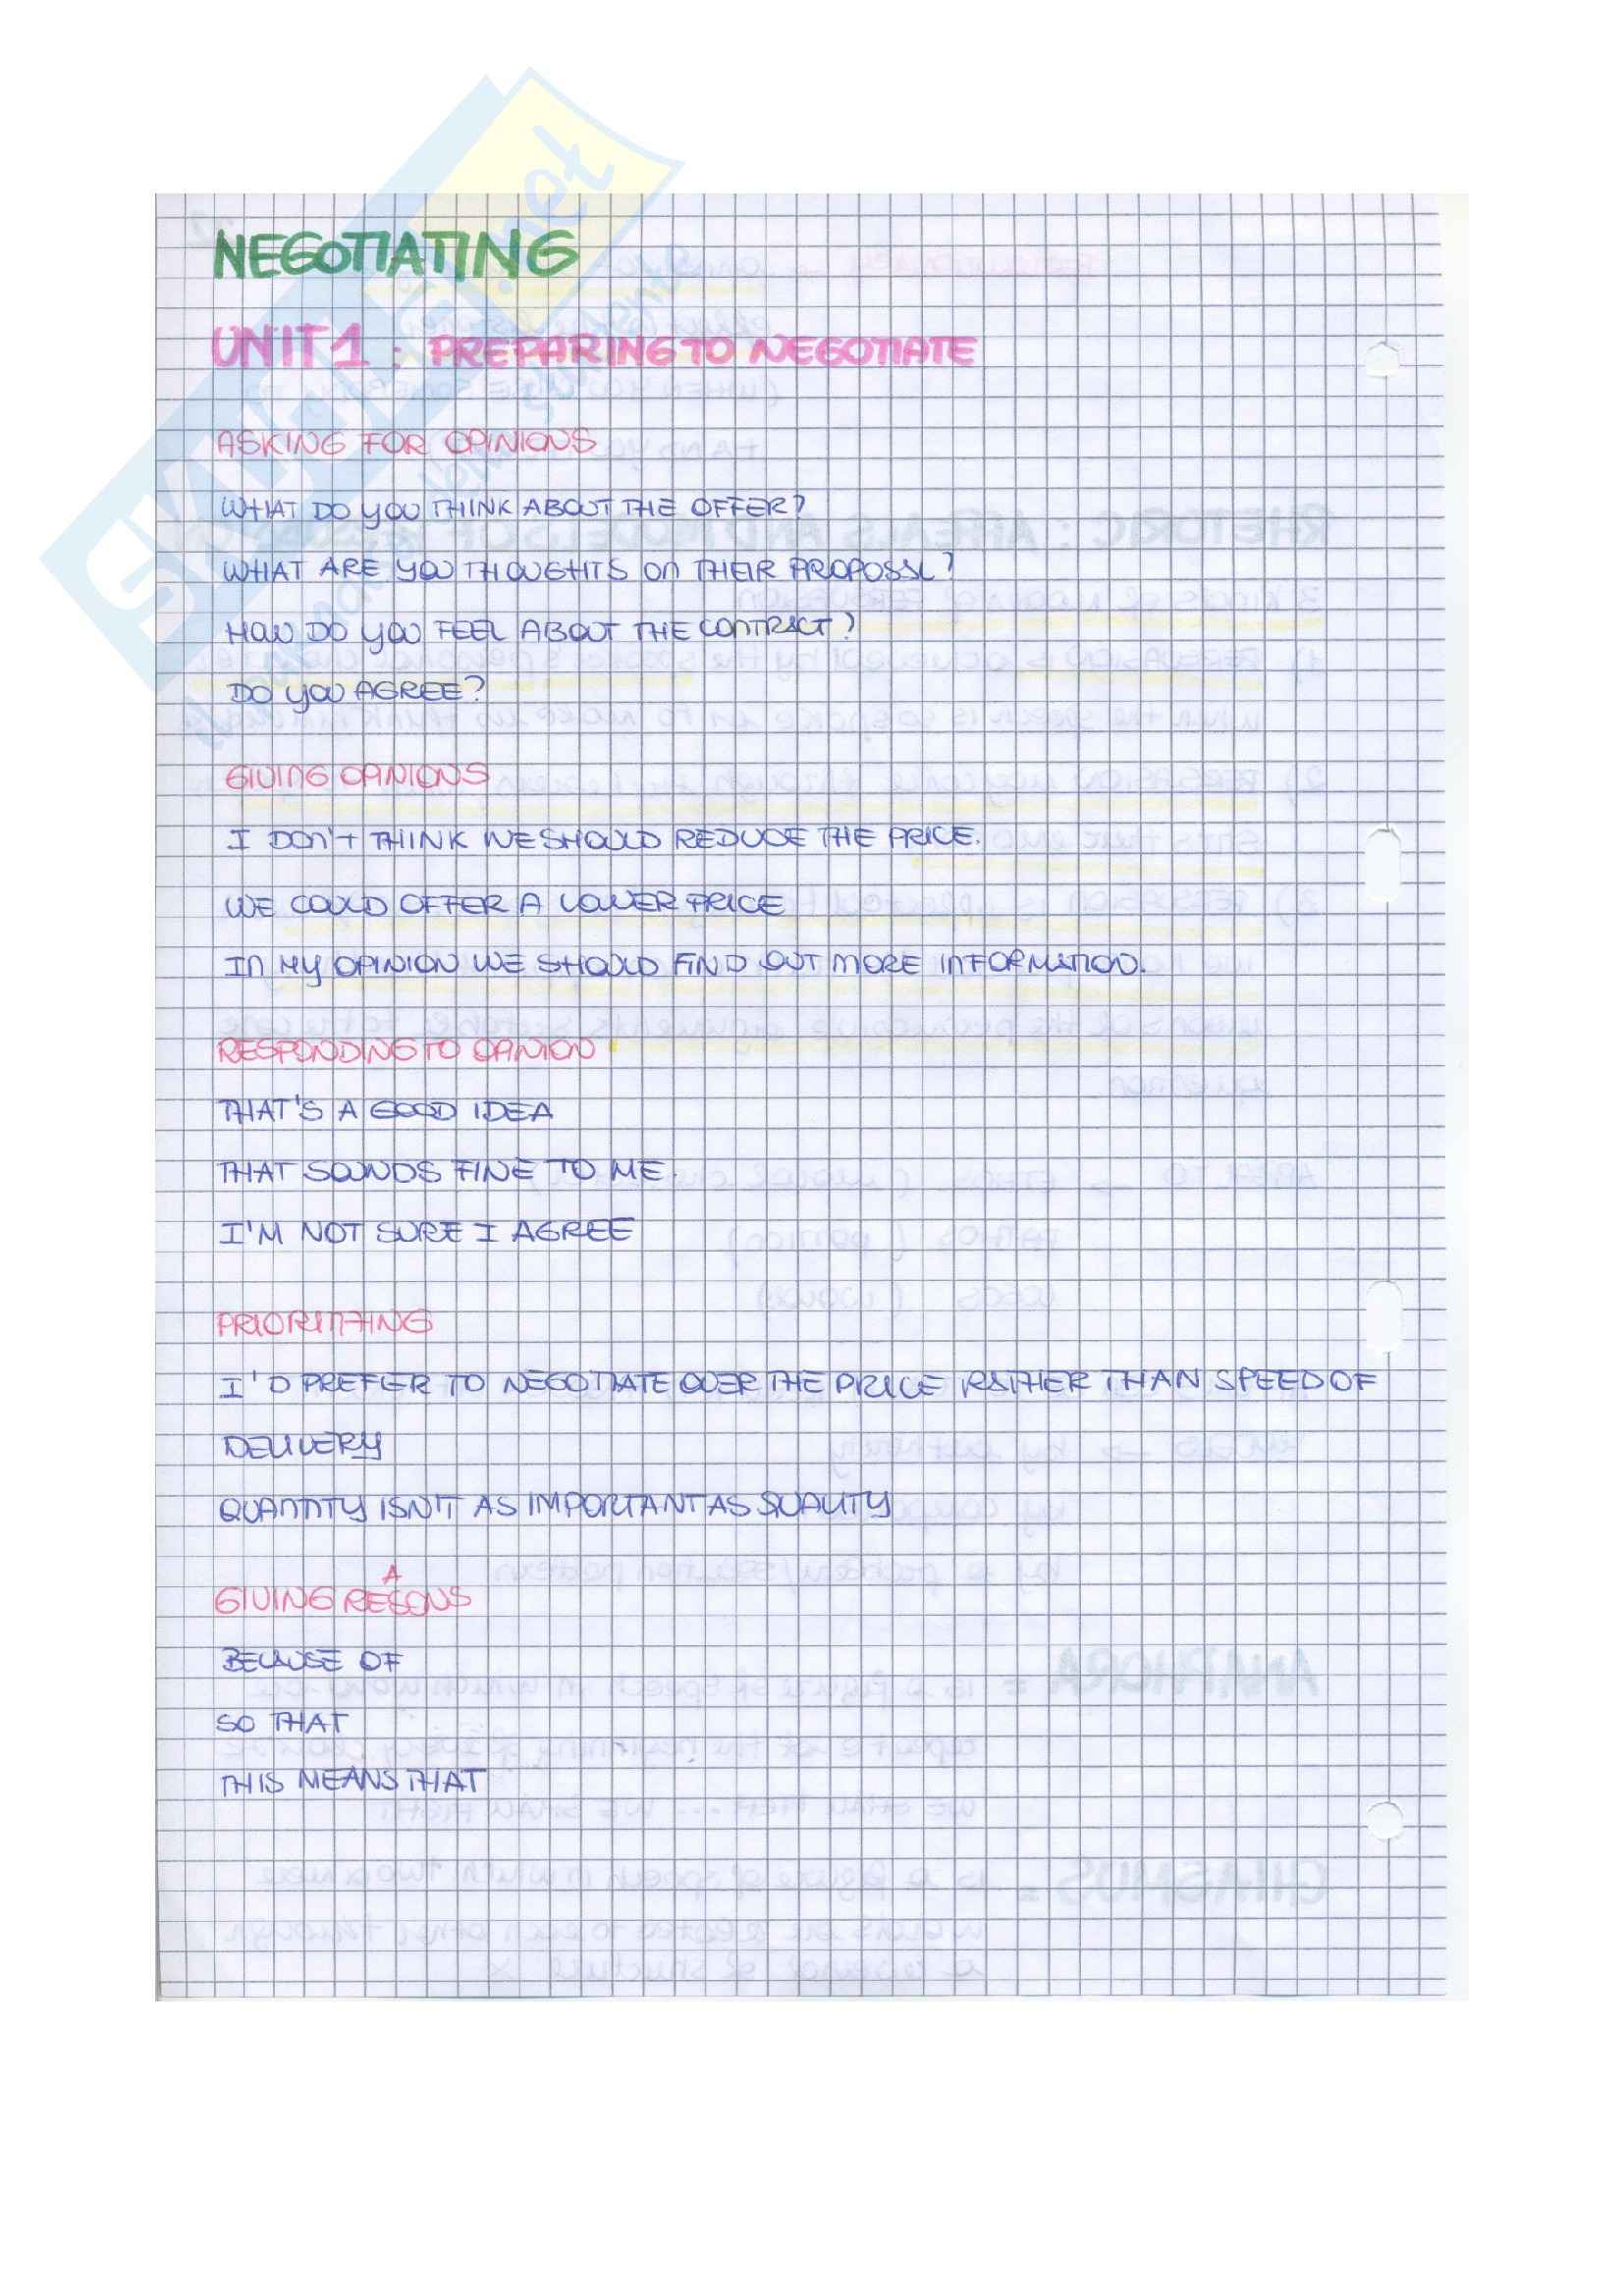 NEGOTIATING
UNIT 1 : PREPARING TO NEGOTIATE
ASKING FOR OPINIONS
WHAT DO YOU THINK ABOUT THE OFFER?
WHAT ARE YOU THOUGHTS ON THEIR PROPOSSL?
HOW DO YOU FEEL ABOUT THE CONTRACT?
DO YOU AGREE?
GIVING OPINIONS
I DON'T THINK WE SHOULD REDUCE THE PRICE.
WE COULD OFFER A LOWER PRICE
IN MY OPINION WE SHOULD FIND OUT MORE INFORMATION.
RESPONDING TO OPINION
THAT'S A GOOD IDEA
THAT SOUNDS FINE TO ME.
I'M NOT SURE I AGREE
PRIORITIZING
I'D PREFER TO NEGOTIATE OVER THE PRICE RATHER THAN SPEED OF
DELIVERY
QUANTITY ISN'T AS IMPORTANT AS QUALITY
GIVING REASONS
BECAUSE OF
SO THAT
THIS MEANS THAT